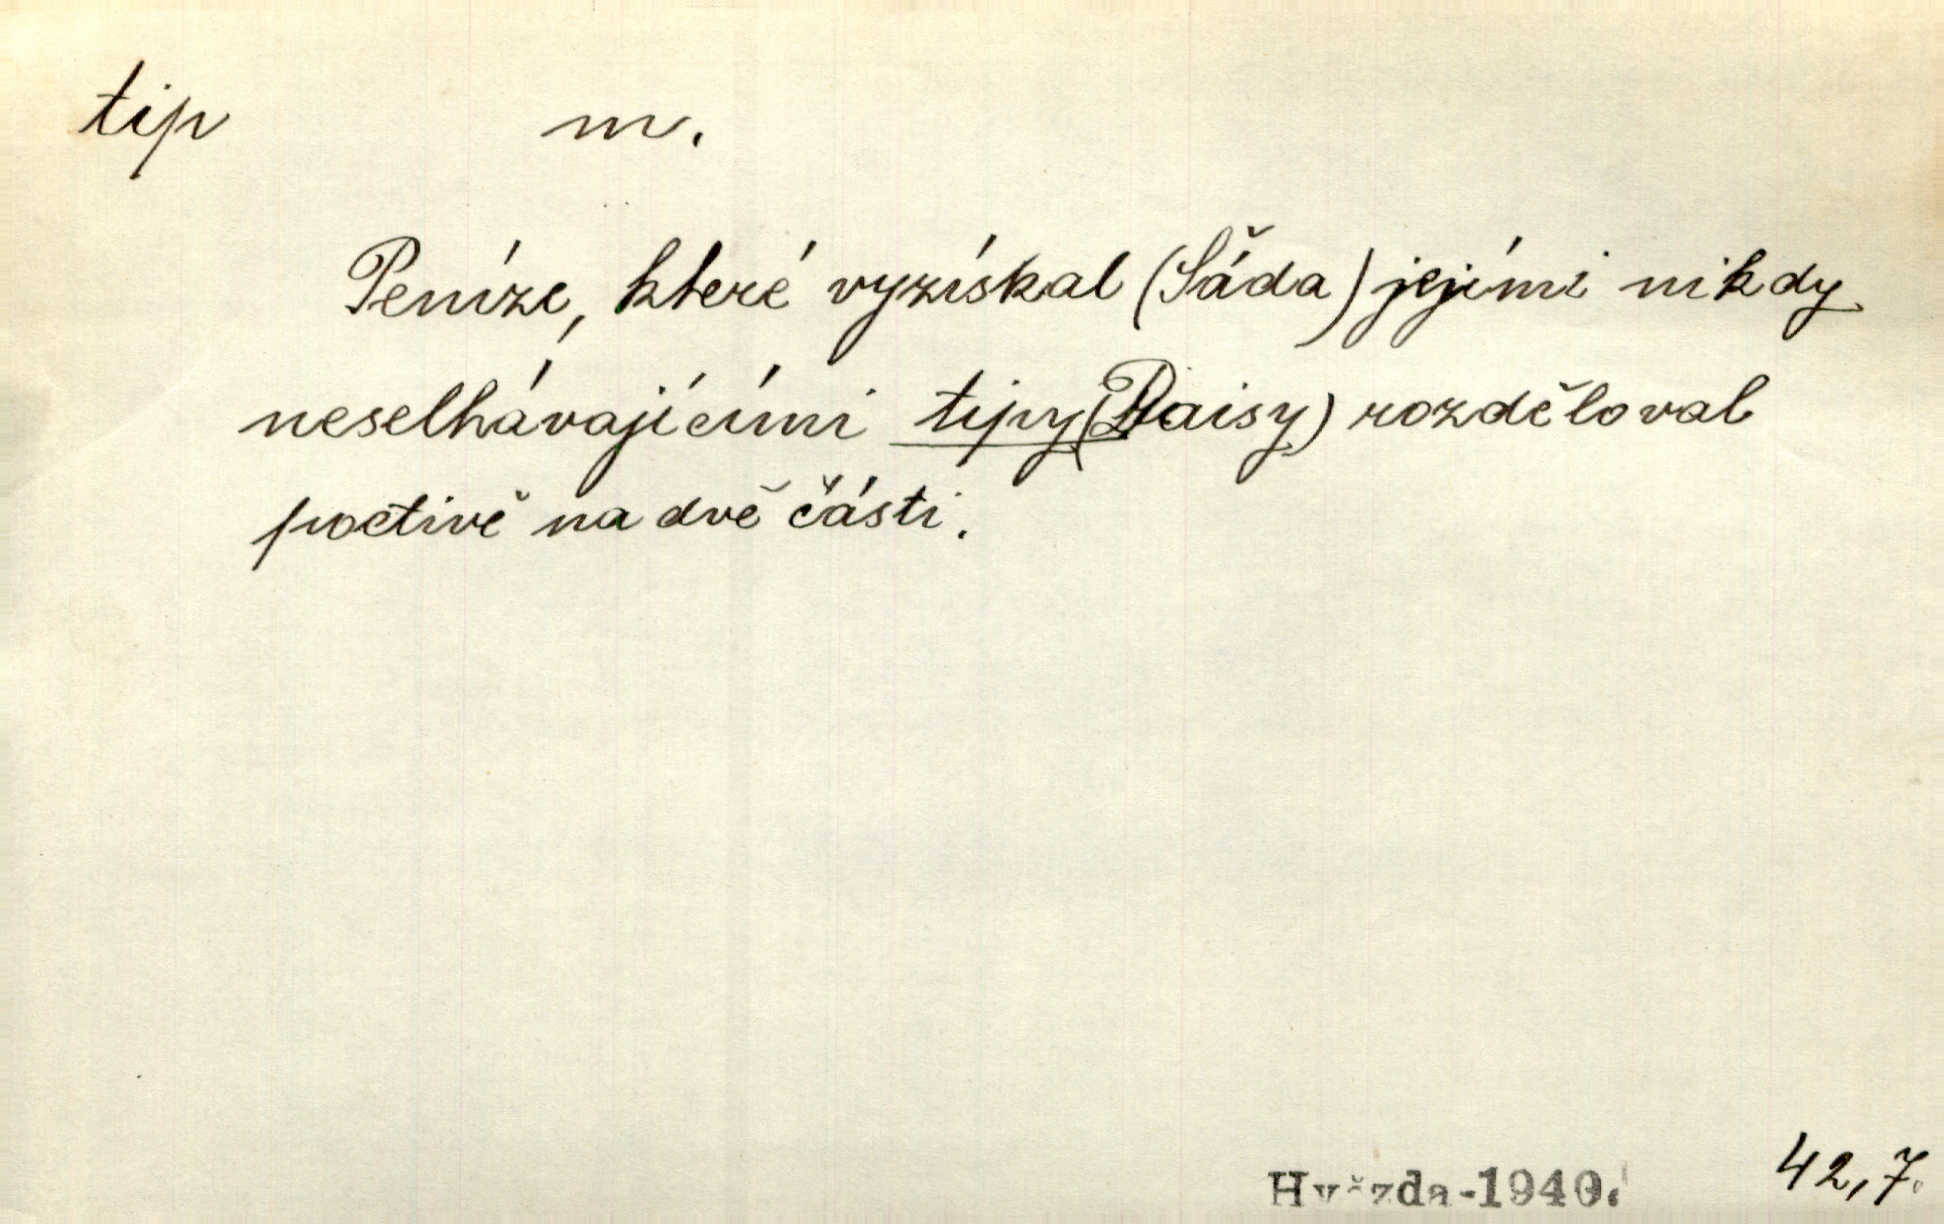 tip m.
Peníze, které vyzískal (Sáďa) jejími nikdy
neselhávajícími tipy (Daisy) rozděloval
poctivě na dvě části.
Hvězda-1940. 42,7.